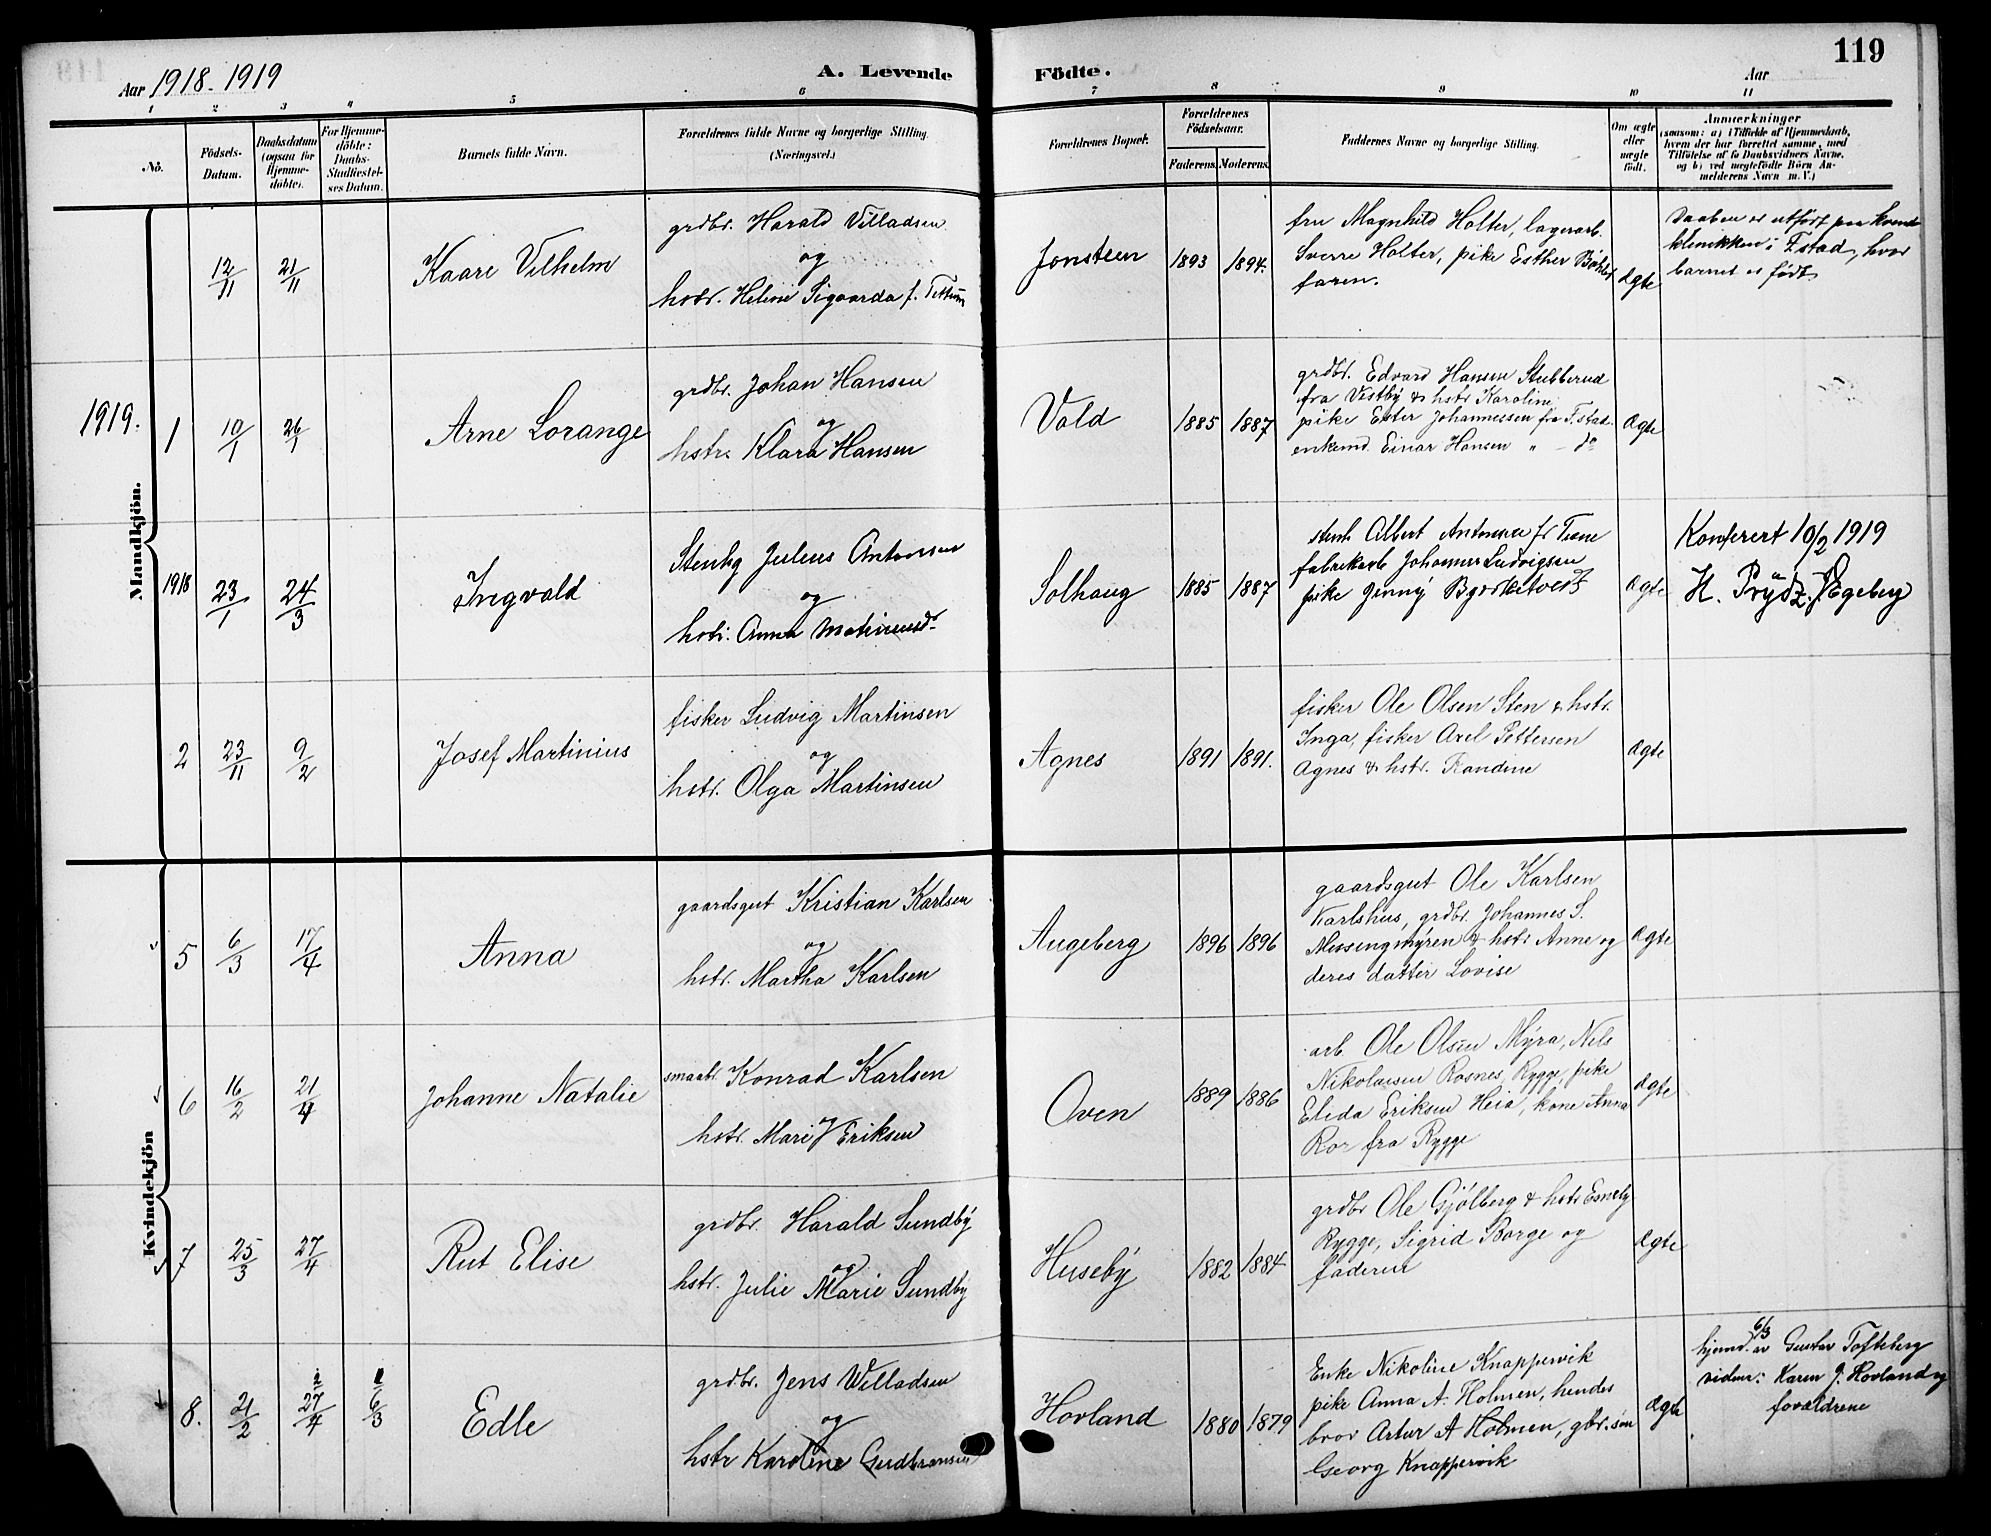 119
Aar 1918-1919
A. Levende Födte.
Aar
1 2 3 4 5 6 7 8 9 10 11
No.
Födsels-Datum.
Daabsdatum (ogsaa for Hjemme-döbte).
For Hjemme-döbte: Daabs-Stadfæstel-ses Datum.
Barnets fulde Navn.
Forældrenes fulde Navne og borgerlige Stilling.
(Næringsvei.)
Forældrenes Bopæl.
Forældrenes Födselsaar.
Faderens. Moderens.
Faddernes Navne og borgerlige Stilling.
Om ægte eller uægte födt.
Anmærkninger
(saasom: a) i Tilfælde af Hjemmedaab,
hvem der har forrettet samme, med
Tilföielse af to Daabsvidners Navne,
og b) ved uægtefödte Börn An-
melderens Navn m. V.)
Mandkjön.
12/11 21/11
Kaare Vilhelm
grdbr. Harald Villadsen
og
hstr. Helene Sigvarda f.
Jonsteen
1893 1894.
fru Magnhild Holter, lagerarb.
Sverre Holter, pike Esther
faren.
ægte
Daaben er utført paa kvinde
klinikken i F.stad, hvor
barnet er født
1919.
1 10/1 26/1
Arne Lorange
grdbr. Johan Hansen
og
hstr. Klara Hansen
Vold
1885 1887
grdbr. Edvard Hansen Stubberud
fra Vestby & hstr Karoline
pike Ester Johannessen fra F.stad
enkemd. Einar Hansen " — do
ægte
1918 23/1 24/3
Ingvald
Stenhg Julius Antonsen
og
hstr. Anna
Solhaug
1885 1887
stenh Albert Antonsen fr Tune
fabrikarb Johannes Ludvigsen
pike Jenny
ægte
Konferert 10/2 1919
H. Prydz. J. Egeberg
2 23/11 9/2
Josef Martinius
fisker Ludvig Martinsen
og
hstr. Olga Martinsen
Agnes
1891 1891.
fisker Ole Olsen Sten & hstr.
Inga, fisker Axel Pettersen
Agnes & hstr. Randine
ægte
Kvindekjön
5 6/3 17/4
Anna
gaardsgut Kristian Karlsen
og
hstr. Martha Karlsen
Augeberg
1896 1896
gaardsgut Ole Karlsen
Karlshus, grdbr. Johannes S.
Messingmyren & hstr Anne og
deres datter Lovise
ægte
6 16/2 21/4
Johanne Natalie
smaabr. Konrad Karlsen
hstr. Mari J Eriksen
Oven
1889 1886
arb. Ole Olsen Myra, Nils
Nikolaisen Rosnes, Rygge, pike
Elida Eriksen Heia, kone Anna
Ror fra Rygge
ægte
7 25/3 27/4
Rut Elise
grdbr. Harald Sundby
og
hstr. Julie Marie Sundby
Huseby
1882 1884
grdbr Ole Gjølberg & hstr
Rygge, Sigrid Borge og
faderen
ægte
8. 21/2 27/4 6/3
Edle
grdbr. Jens Willadsen
og
hstr Karoline Gudbransen
Hovland
1880 1879
Enke Nikoline Knappervik
pike Anna A. Holmen, hendes
bror Artur A Holmen, gbr.søn
Georg Knappervik
ægte
hjemd. 6/3 av Gustav Tofteberg
vidner: Karen J. Hovland og
forældrene